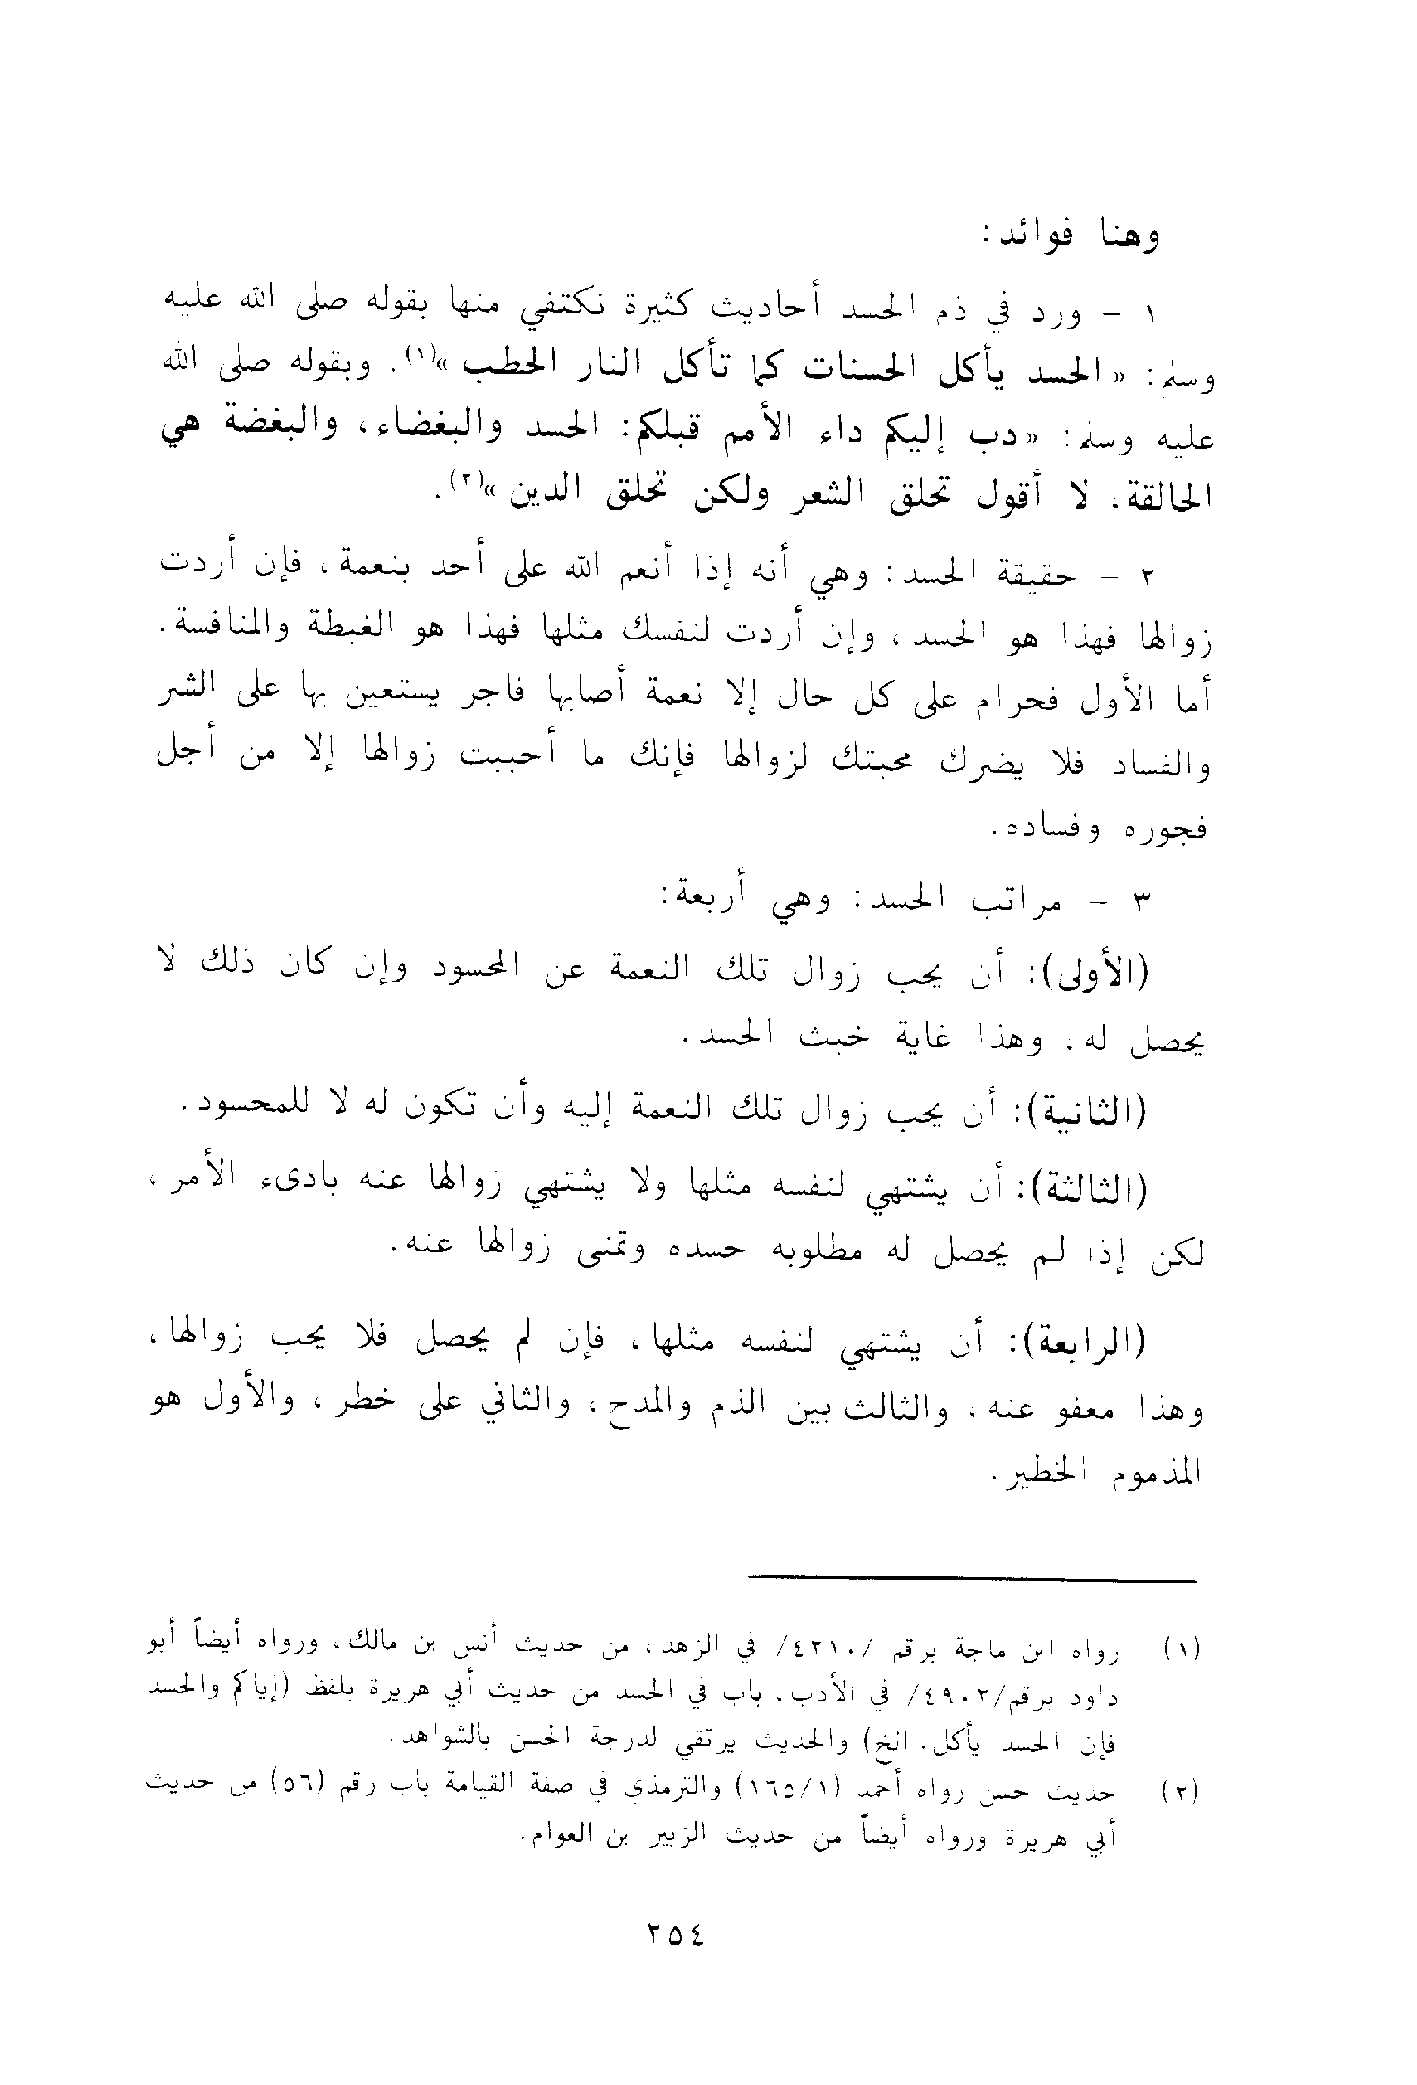 وهنا فوائد:
١ – ورد في ذم الحسد أحاديث كثيرة نكتفي منها بقوله صلى الله عليه
وسلم: «الحسد يأكل الحسنات كما تأكل النار الحطب»(١). وبقوله صلى الله
عليه وسلم: «دب إليكم داء الأمم قبلكم: الحسد والبغضاء، والبغضة هي
الحالقة. لا أقول تحلق الشعر ولكن تحلق الدين»(٢).
٢ – حقيقة الحسد: وهي أنه إذا أنعم الله على أحد بنعمة، فإن أردت
زوالها فهذا هو الحسد، وإن أردت لنفسك مثلها فهذا هو الغبطة والمنافسة.
أما الأول فحرام على كل حال إلا نعمة أصابها فاجر يستعين بها على الشر
والفساد فلا يضرك محبتك لزوالها فإنك ما أحببت زوالها إلا من أجل
فجوره وفساده.
٣ – مراتب الحسد: وهي أربعة:
(الأولى): أن يحب زوال تلك النعمة عن المحسود وإن كان ذلك لا
يحصل له، وهذا غاية خبث الحسد.
(الثانية): أن يحب زوال تلك النعمة إليه وأن تكون له لا للمحسود.
(الثالثة): أن يشتهي لنفسه مثلها ولا يشتهي زوالها عنه بادىء الأمر،
لكن إذا لم يحصل له مطلوبه حسده وتمنى زوالها عنه.
(الرابعة): أن يشتهي لنفسه مثلها، فإن لم يحصل فلا يحب زوالها،
وهذا معفو عنه، والثالث بين الذم والمدح، والثاني على خطر، والأول هو
المذموم الخطير.
(١) رواه ابن ماجة برقم /٤٢١٠/ في الزهد، من حديث أنس بن مالك، ورواه أيضاً أبو
داود برقم/٤٩٠٢/ في الأدب. باب في الحسد من حديث أبي هريرة بلفظ (إياكم والحسد
فإن الحسد يأكل. الخ) والحديث يرتقي لدرجة الحسن بالشواهد.
(٢) حديث حسن رواه أحمد (١/١٦٥) والترمذي في صفة القيامة باب رقم (٥٦) من حديث
أبي هريرة ورواه أيضاً من حديث الزبير بن العوام.
٢٥٤